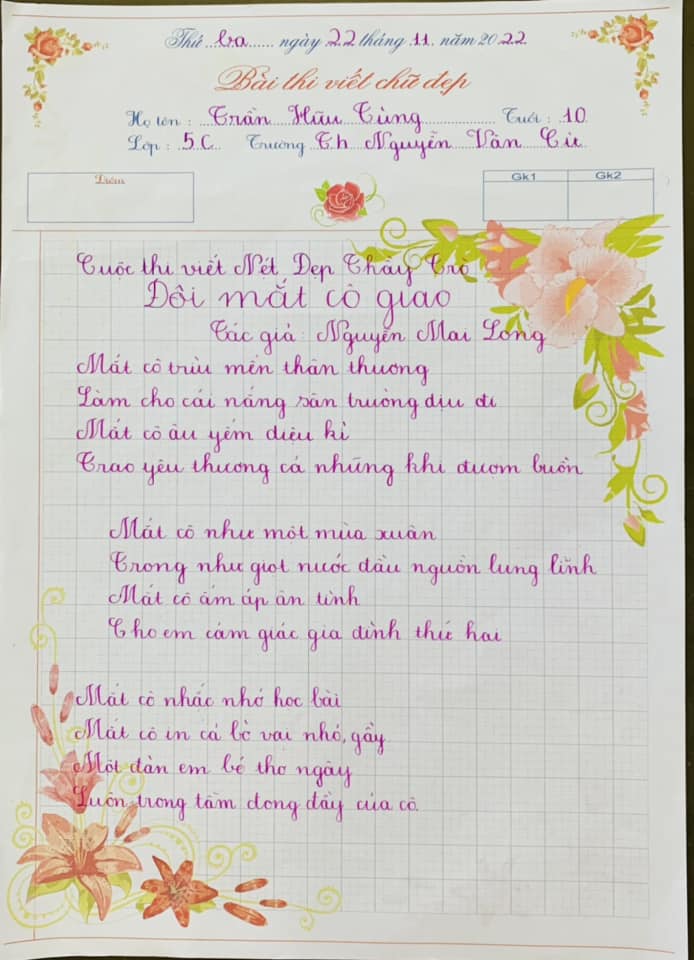 Thứ ba ngày 22 tháng 11 năm 2022
Bài thi viết chữ đẹp
Họ tên : Trần Hữu Tùng Tuổi : 10
Lớp : 5C Trường Th Nguyễn Văn Cừ
Điểm
Gk1 Gk2
Cuộc thi viết Nét Đẹp Thầy Trò
Đôi mắt cô giao
Tác giả : Nguyễn Mai Long
Mắt cô trìu mến thân thương
Làm cho cái nắng sân trường dịu đi
Mắt cô âu yếm diệu kì
Trao yêu thương cả những khi đượm buồn
Mắt cô như một mùa xuân
Trong như giọt nước đầu nguồn lung linh
Mắt cô ấm áp ân tình
Cho em cảm giác gia đình thứ hai
Mắt cô nhắc nhở học bài
Mắt cô in cả bờ vai nhỏ, gầy
Một đàn em bé thơ ngây
Luôn trong tầm đong đầy của cô.